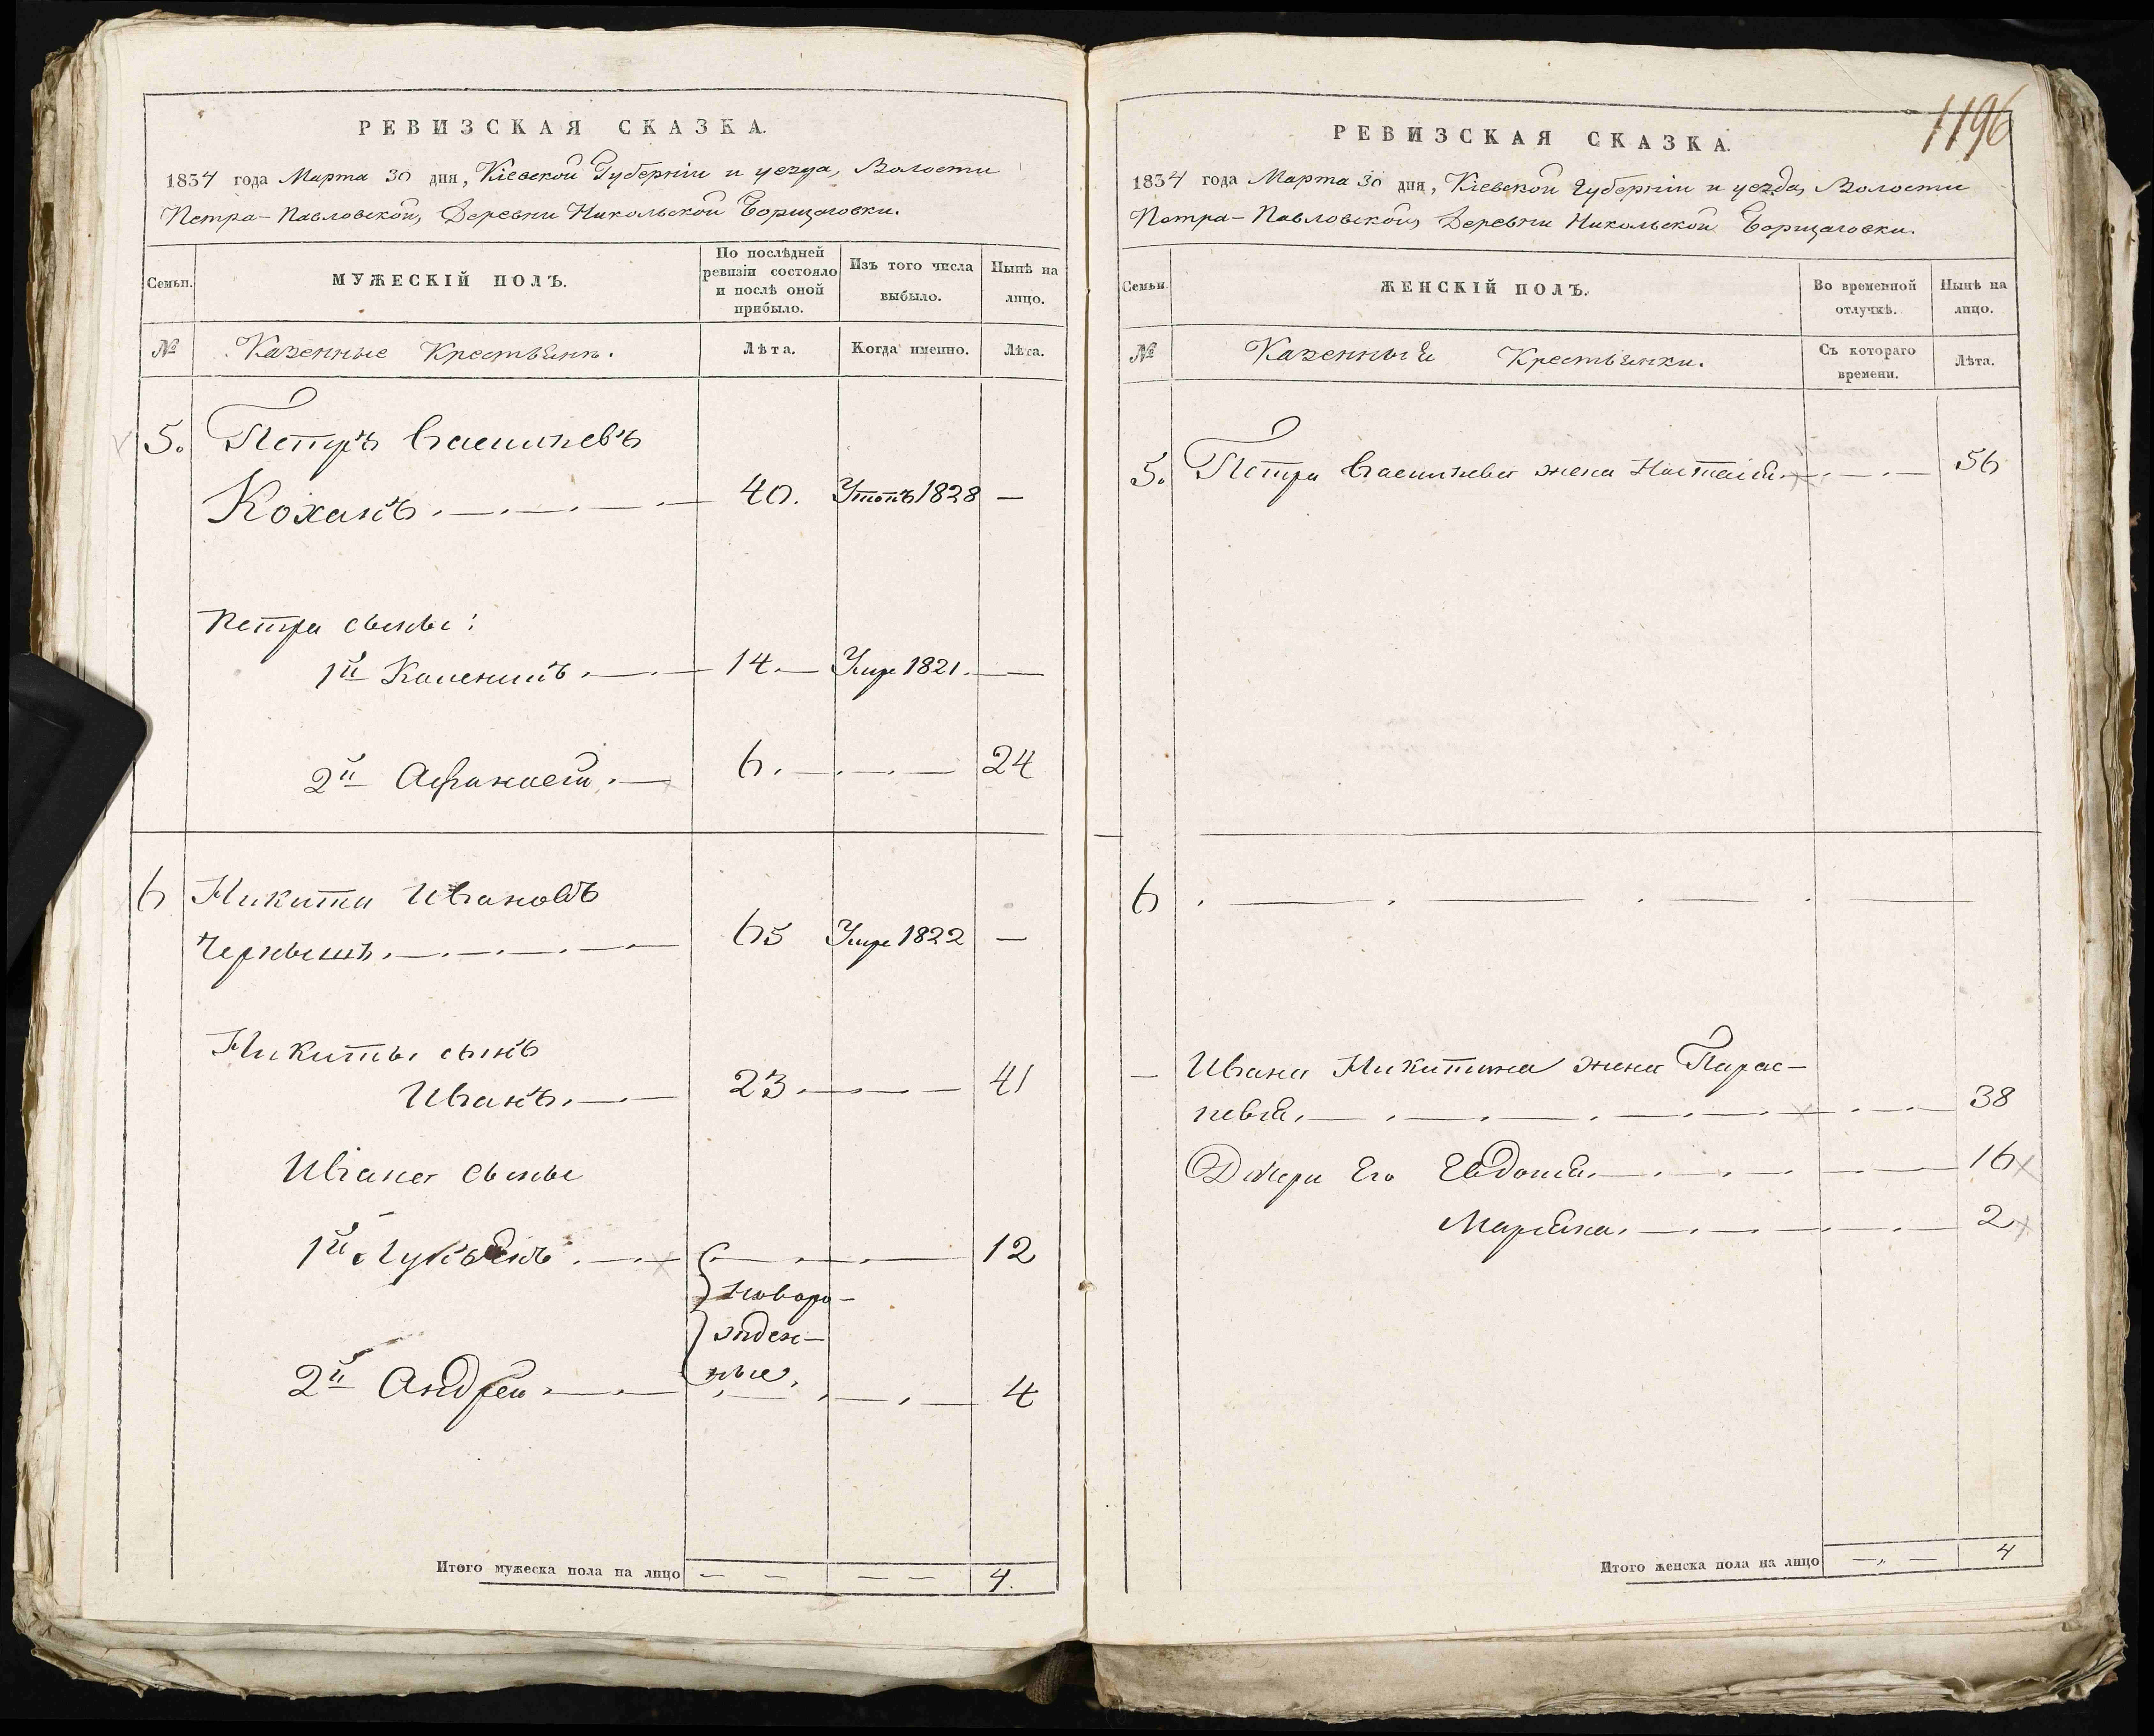 РЕВИЗСКАЯ СКАЗКА.
1834 года Марта 30 дня, Кіевской Губерніи и уезда, Волости
Петра-Павловской, Деревни Никольской Борщаговки.
Семьи.
МУЖЕСКІЙ ПОЛЪ.
По послѣдней ревизіи состояло и послѣ оной прибыло.
Изъ того числа выбыло.
Нынѣ на лицо.
№ Казенные Крестьяне. Лѣта. Когда именно. Лѣта.
5. Петръ Васильевъ
Коханъ 40. Утопъ 1828 —
Петра сыны:
1й 14. — Умре 1821. —
2й Афанасий 6. — 24
6 Никита Ивановъ
Чернышъ 65 Умре 1822 —
Никиты сынъ
Иванъ 23 — 41
Ивана сыны
1й Лукьянъ 12
новоро-
жден-
ные,
2й Андрей 4
Итого мужеска пола на лицо — — — — 4.
1196
РЕВИЗСКАЯ СКАЗКА.
1834 года Марта 30 дня, Кіевской Губерніи и уезда, Волости
Петра-Павловской, Деревни Никольской Борщаговки.
Семьи.
ЖЕНСКІЙ ПОЛЪ.
Во временной отлучкѣ.
Нынѣ на лицо.
№ Казенныя Крестьянки. Съ котораго времени. Лѣта.
5. Петра Васильева жена Настасія 56
6
— Ивана Никитина жена Парас-
кевія, 38
Дочери Его Евдокія 16
Маріяна 2
Итого женска пола на лицо — — 4